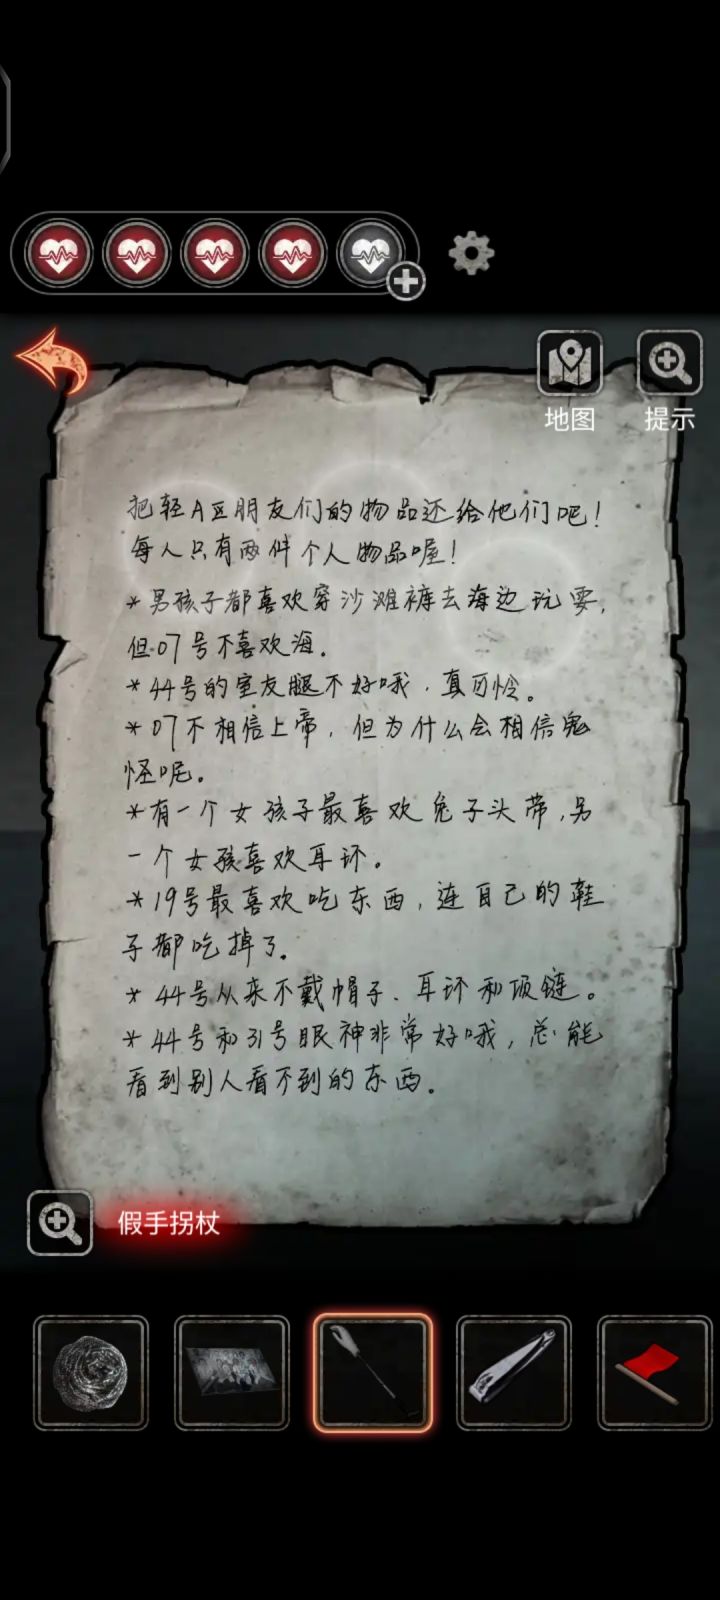 地图
提示
把轻A区朋友们的物品还给他们吧！
每人只有两件个人物品喔！
*男孩子都喜欢穿沙滩裤去海边玩耍，
但07号不喜欢海。
*44号的室友腿不好哦，真可怜。
*07不相信上帝，但为什么会相信鬼
怪呢。
*有一个女孩子最喜欢兔子头带，另
一个女孩喜欢耳环。
*19号最喜欢吃东西，连自己的鞋
子都吃掉了。
*44号从来不戴帽子、耳环和项链。
*44号和31号眼神非常好哦，总能
看到别人看不到的东西。
假手拐杖